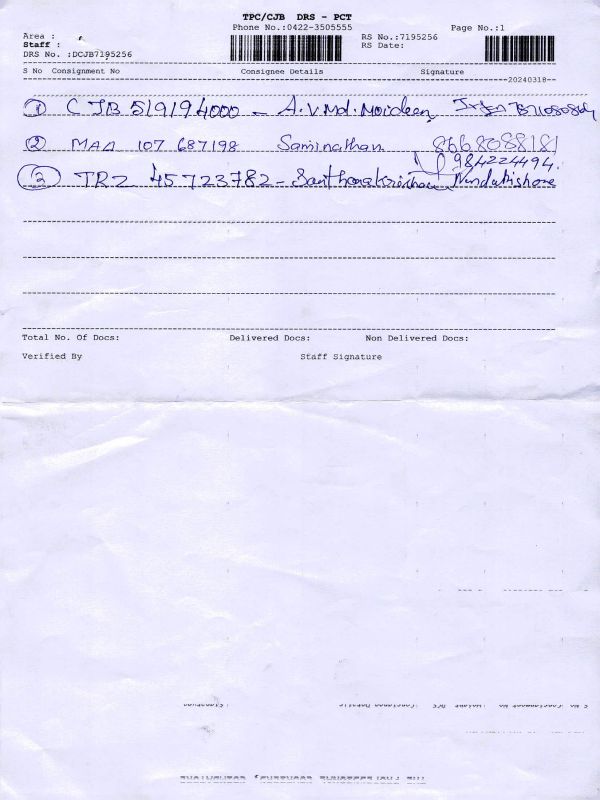 TPC/CJB DRS - PCT
Phone No.:0422-3505555 Page No.:1
Area : RS No.:7195256
Staff : RS Date:
DRS No. :DCJB7195256
S No Consignment No Consignee Details Signature
20240318
1 CJB 519194000 - A.V.Md. Moideen
2 MAA 107 687198 Saminathan 8668088181
984224494.
3 TRZ 45723782 - Nandakishore
Total No. Of Docs: Delivered Docs: Non Delivered Docs:
Verified By Staff Signature